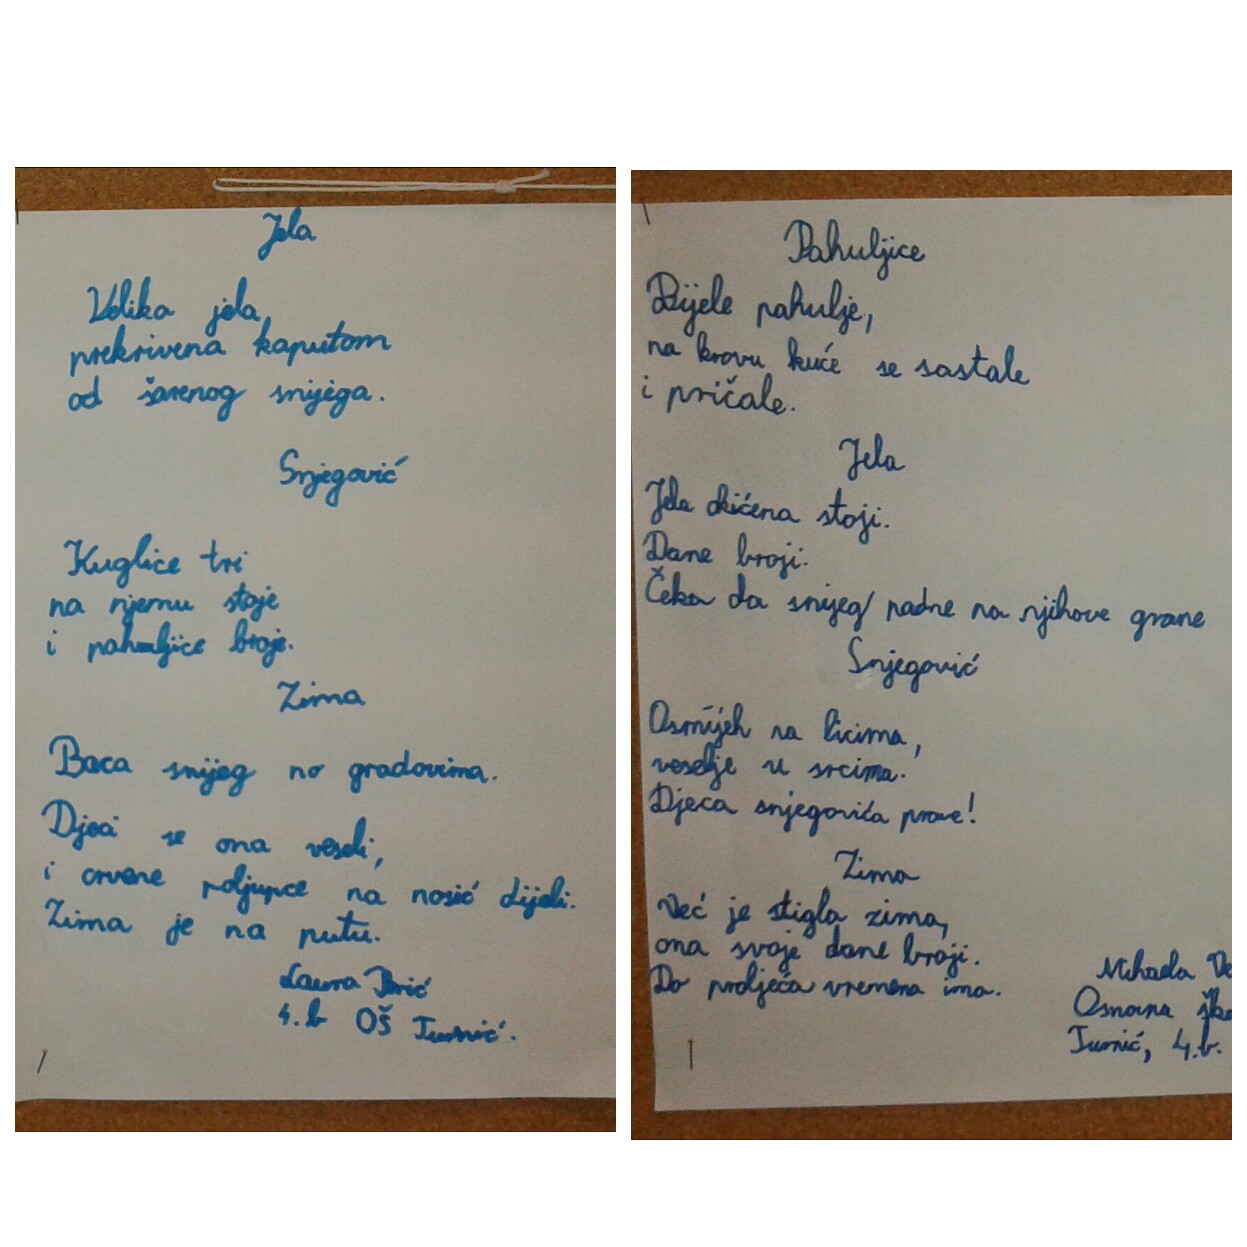 Jela
Velika jela
prekrivena kaputom
od šarenog snijega.
Snjegović
Kuglice tri
na njemu stoje
i pahuljice broje.
Zima
Baca snijeg no gradovima.
Djeci se ona veseli,
i crvene poljupce na nosić dijeli.
Zima je na putu.
Laura Perić
4.b OŠ Turnić.
Pahuljice
Bijele pahulje,
na krovu kuće se sastale
i pričale.
Jela
Jela okićena stoji.
Dane broji.
Čeka da snijeg padne na njihove grane
Snjegović
Osmijeh na licima,
veselje u srcima.
Djeca snjegovića prave!
Zima
Već je stigla zima,
ona svoje dane broji.
Do proljeća vremena ima.
Mihaela
Osnovna
Turnić, 4.b.